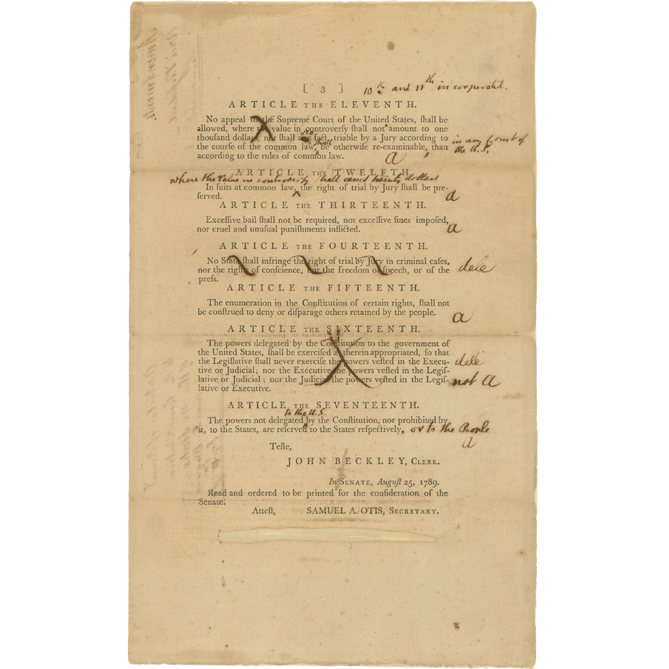 [ 3 ]
10th and 11th incorporated.
ARTICLE THE ELEVENTH.
No appeal to the Supreme Court of the United States, ſhall be
allowed, where the value in controverſy ſhall not amount to one
thouſand dollars, nor ſhall any fact, triable by a Jury according to
the courſe of the common law, be otherwiſe re-examinable, than
according to the rules of common law.
no
ſhall
in any Court of
the U.S.
a
ARTICLE THE TWELFTH.
where the value in controversy shall exceed twenty dollars
In ſuits at common law, the right of trial by Jury ſhall be pre-
ſerved.
a
ARTICLE THE THIRTEENTH.
Exceſſive bail ſhall not be required, nor exceſſive fines impoſed,
nor cruel and unuſual puniſhments inflicted.
a
ARTICLE THE FOURTEENTH.
No State ſhall infringe the right of trial by Jury in criminal caſes,
nor the right of conſcience, nor the freedom of ſpeech, or of the
preſs.
dele
ARTICLE THE FIFTEENTH.
The enumeration in the Conſtitution of certain rights, ſhall not
be conſtrued to deny or diſparage others retained by the people.
a
ARTICLE THE SIXTEENTH.
The powers delegated by the Conſtitution to the government of
the United States, ſhall be exerciſed as therein appropriated, ſo that
the Legiſlative ſhall never exerciſe the powers veſted in the Execu-
tive or Judicial; nor the Executive the powers veſted in the Legiſ-
lative or Judicial; nor the Judicial the powers veſted in the Legiſ-
lative or Executive.
dele
not a
ARTICLE THE SEVENTEENTH.
to the U.S.
The powers not delegated by the Conſtitution, nor prohibited by
it, to the States, are reſerved to the States reſpectively, or to the People
a
Teſte,
JOHN BECKLEY, CLERK.
In SENATE, Auguſt 25, 1789.
Read and ordered to be printed for the conſideration of the
Senate.
Atteſt, SAMUEL A. OTIS, SECRETARY.